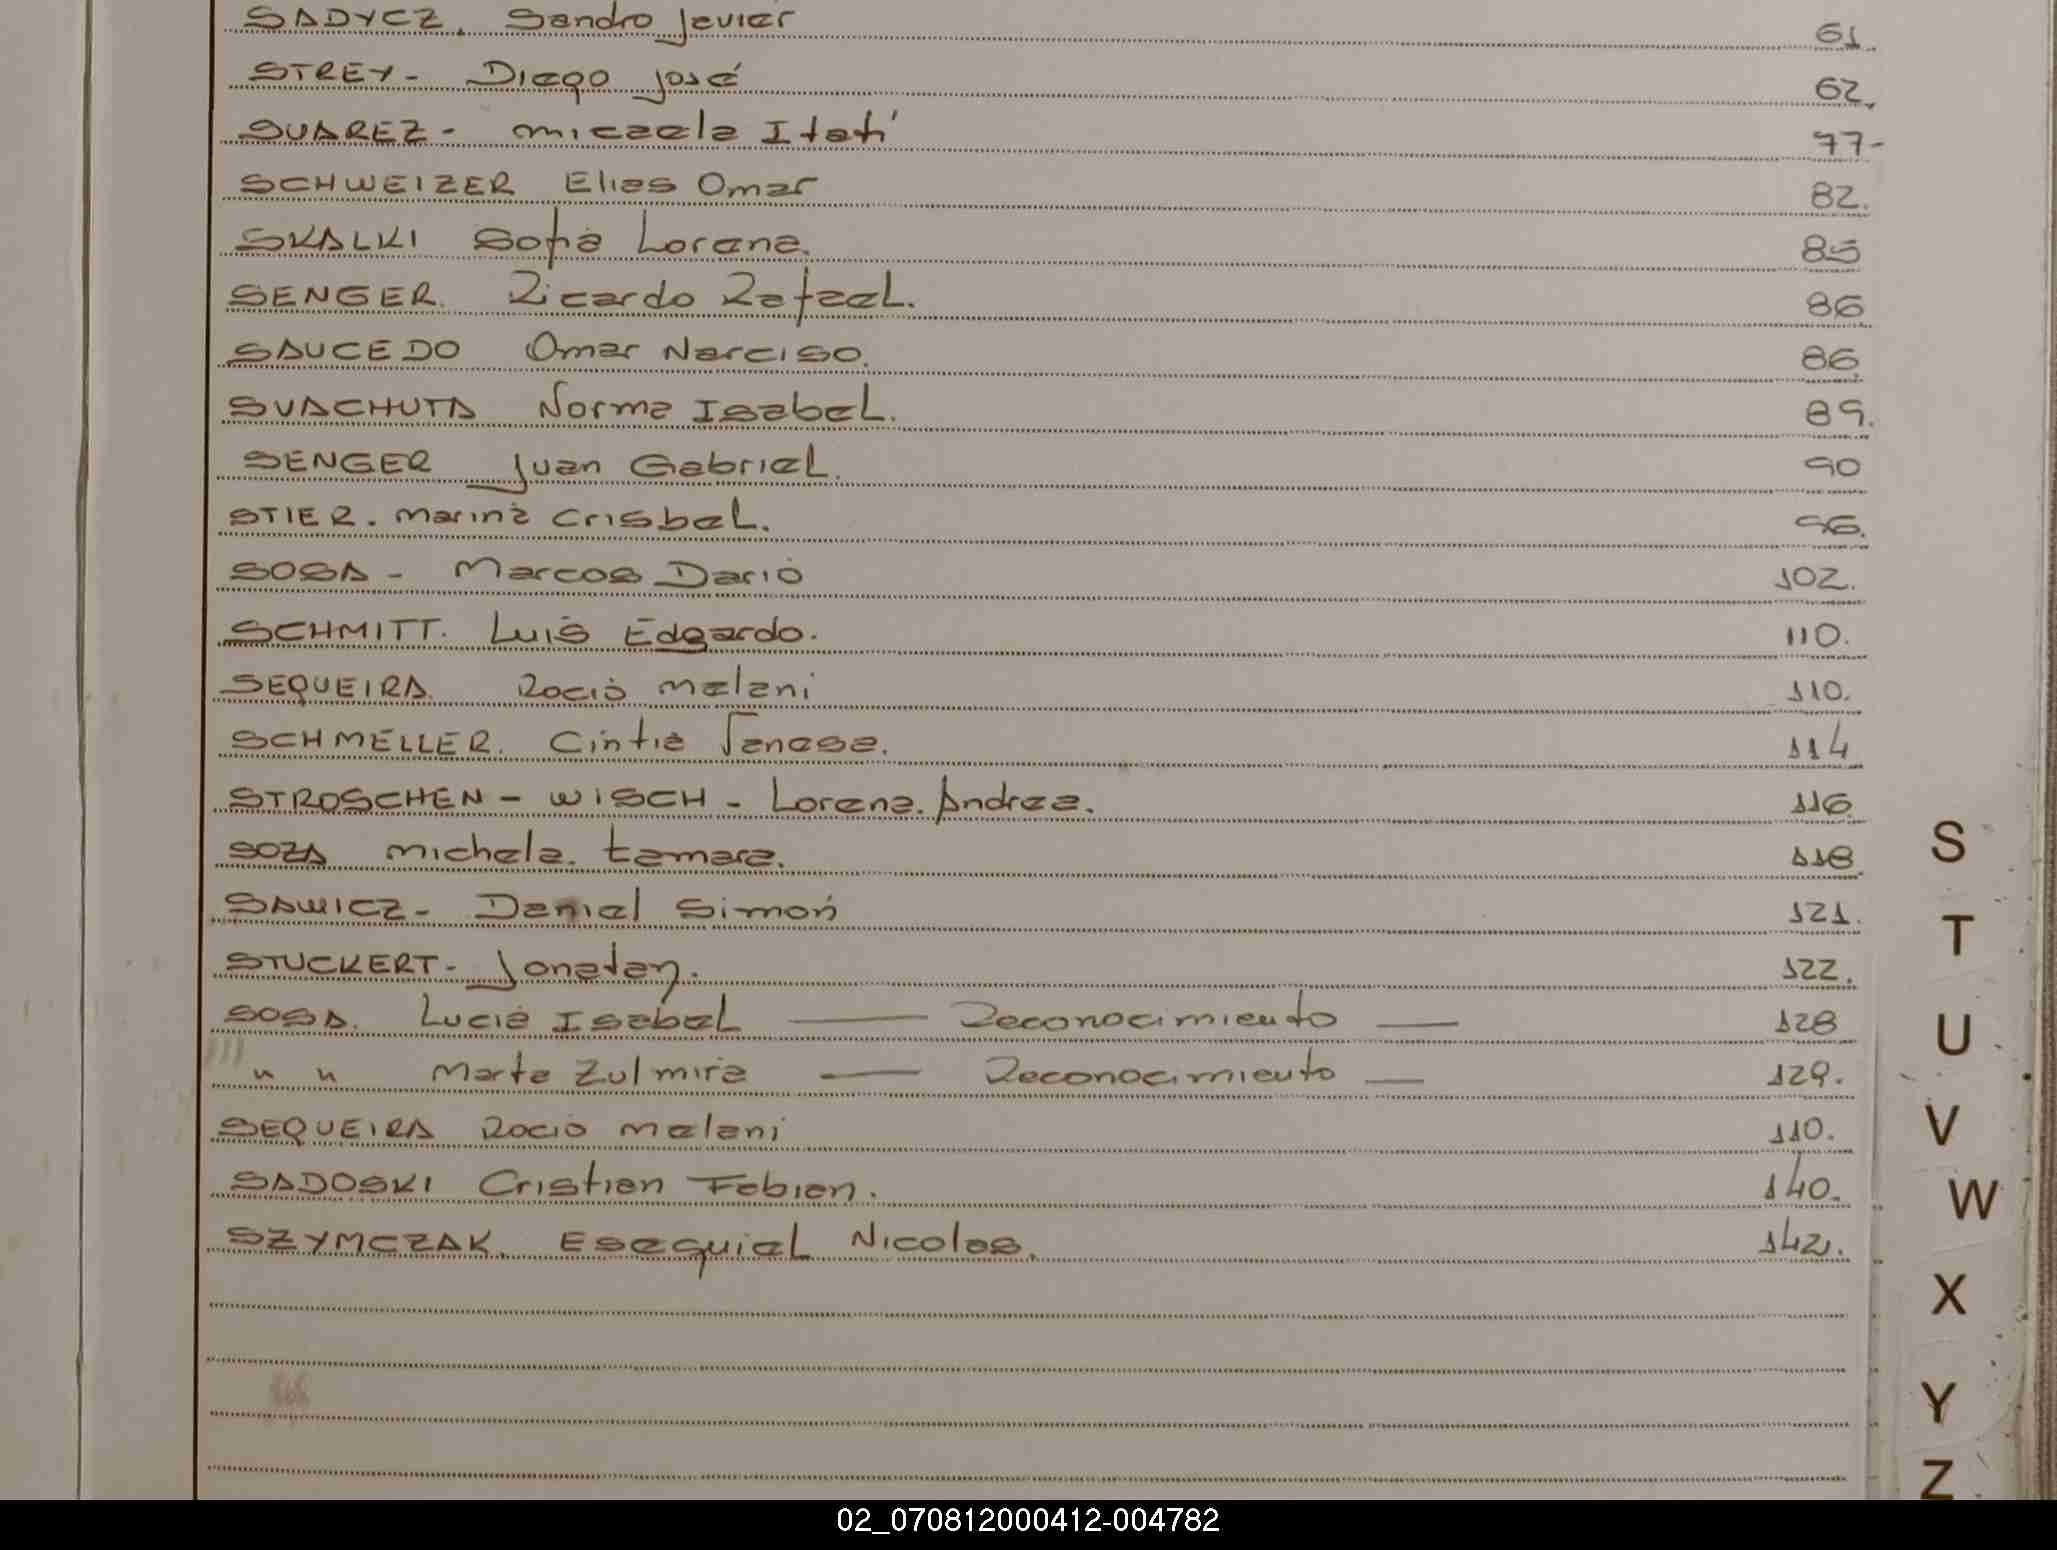 SADYCZ. Sandro Javier 61
STREY - Diego José 62.
SUAREZ - Micaela Itatí 77-
SCHWEIZER Elias Omar 82.
SKALKI Sofia Lorena. 85
SENGER. Ricardo Rafael. 86
SAUCEDO Omar Narciso. 86
SVACHUTA Norma Isabel. 89.
SENGER Juan Gabriel. 90
STIER. Marina Crisbel. 96.
SOSA - Marcos Darió 102.
SCHMITT. Luis Edgardo. 110.
SEQUEIRA. Rocio Melani 110.
SCHMELLER. Cintia Vanesa. 114
STROSCHEN - WISCH - Lorena. Andrea. 116.
SOZA Michela. Tamara. 118
SAWICZ - Daniel Simón 121.
STUCKERT - Jonatan. 122.
SOSA. Lucia Isabel — Reconocimiento — 128
" " Marta Zulmira — Reconocimiento — 129.
SEQUEIRA Rocio Melani 110.
SADOSKI Cristian Fabian. 140.
SZYMCZAK. Esequiel Nicolas. 142.
S
T
U
V
W
X
Y
Z
02_070812000412-004782